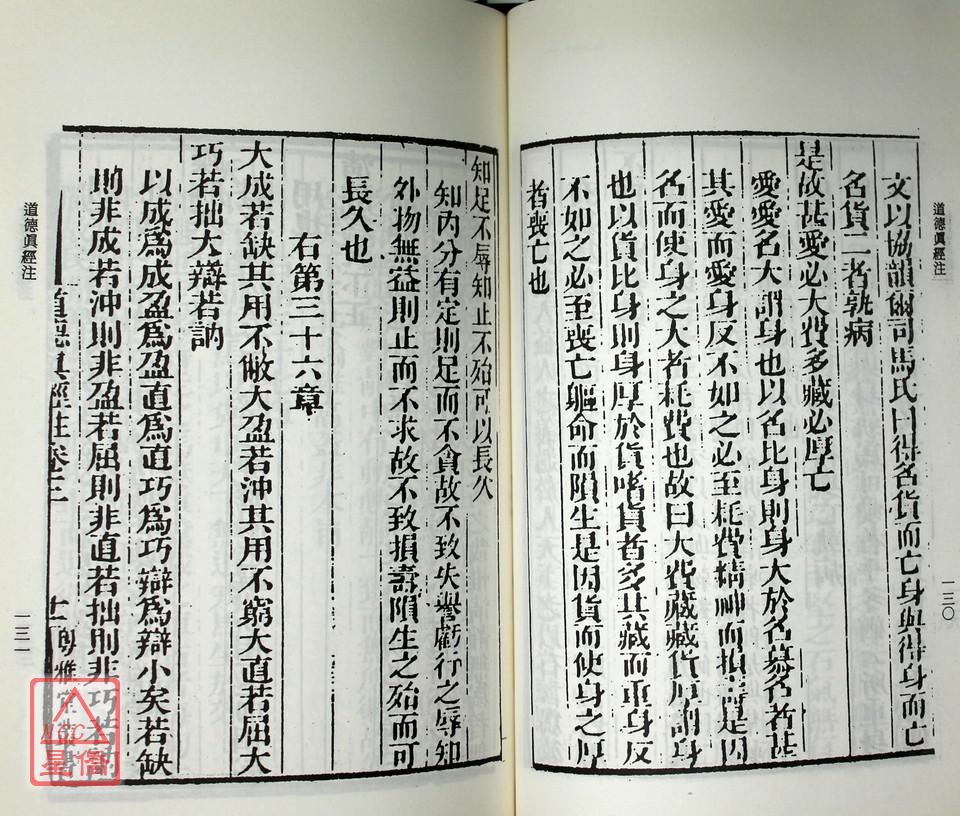 道德眞經注
一三〇
文以協韻爾司馬氏曰得名貨而亡身與得身而亡
名貨二者孰病
是故甚愛必大費多藏必厚亡
愛愛名大謂身也以名比身則身大於名慕名者甚
其愛而愛身反不如之必至耗費精神而損壽是因
名而使身之大者耗費也故曰大費藏藏貨厚謂身
也以貨比身則身厚於貨嗜貨者多其藏而重身反
不如之必至喪亡軀命而隕生是因貨而使身之厚
者喪亡也
知足不辱知止不殆可以長久
知內分有定則足而不貪故不致失譽虧行之辱知
外物無益則止而不求故不致損壽隕生之殆而可
長久也
右第三十六章
大成若缺其用不敝大盈若沖其用不窮大直若屈大
巧若拙大辯若訥
以成爲成盈爲盈直爲直巧爲巧辯爲辯小矣若缺
則非成若沖則非盈若屈則非直若拙則非巧若訥
道德眞經注卷三
十二
粵雅堂叢書
道德眞經注
一三一
MGC
星僑